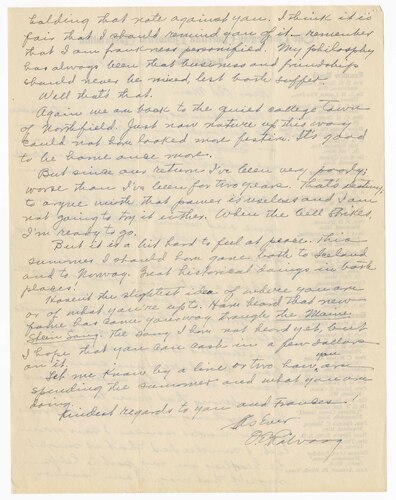 holding that note against you. I think it is
fair that I should remind you of it - remember
that I am frankness personified. My philosophy
has always been that business and friendship
should never be mixed, lest both suffer.
Well that's that.
Again we are back to the quiet college town
of Northfield. Just now nature up this way
could not have looked more festive. It's good
to be home once more.
But since our return I've been very poorly,
worse than I've been for two years. That's destiny,
to argue with that power is useless and I am
not going to try it either. When the bell strikes,
I'm ready to go.
But it is a bit hard to feel at peace. This
summer I should have gone both to Iceland
and to Norway. Great historical doings in both
places!
Haven't the slightest idea of where you are
or of what you're up to. Have heard that new
fame has come your way through the Maine
Stein Song. The song I have not heard yet, but
I hope that you can cash in a few dollars
on it.
Let me know by a line or two how you are
spending the summer and what you are
doing.
Kindest regards to you and Frances!
As Ever
O. E. Rölvaag